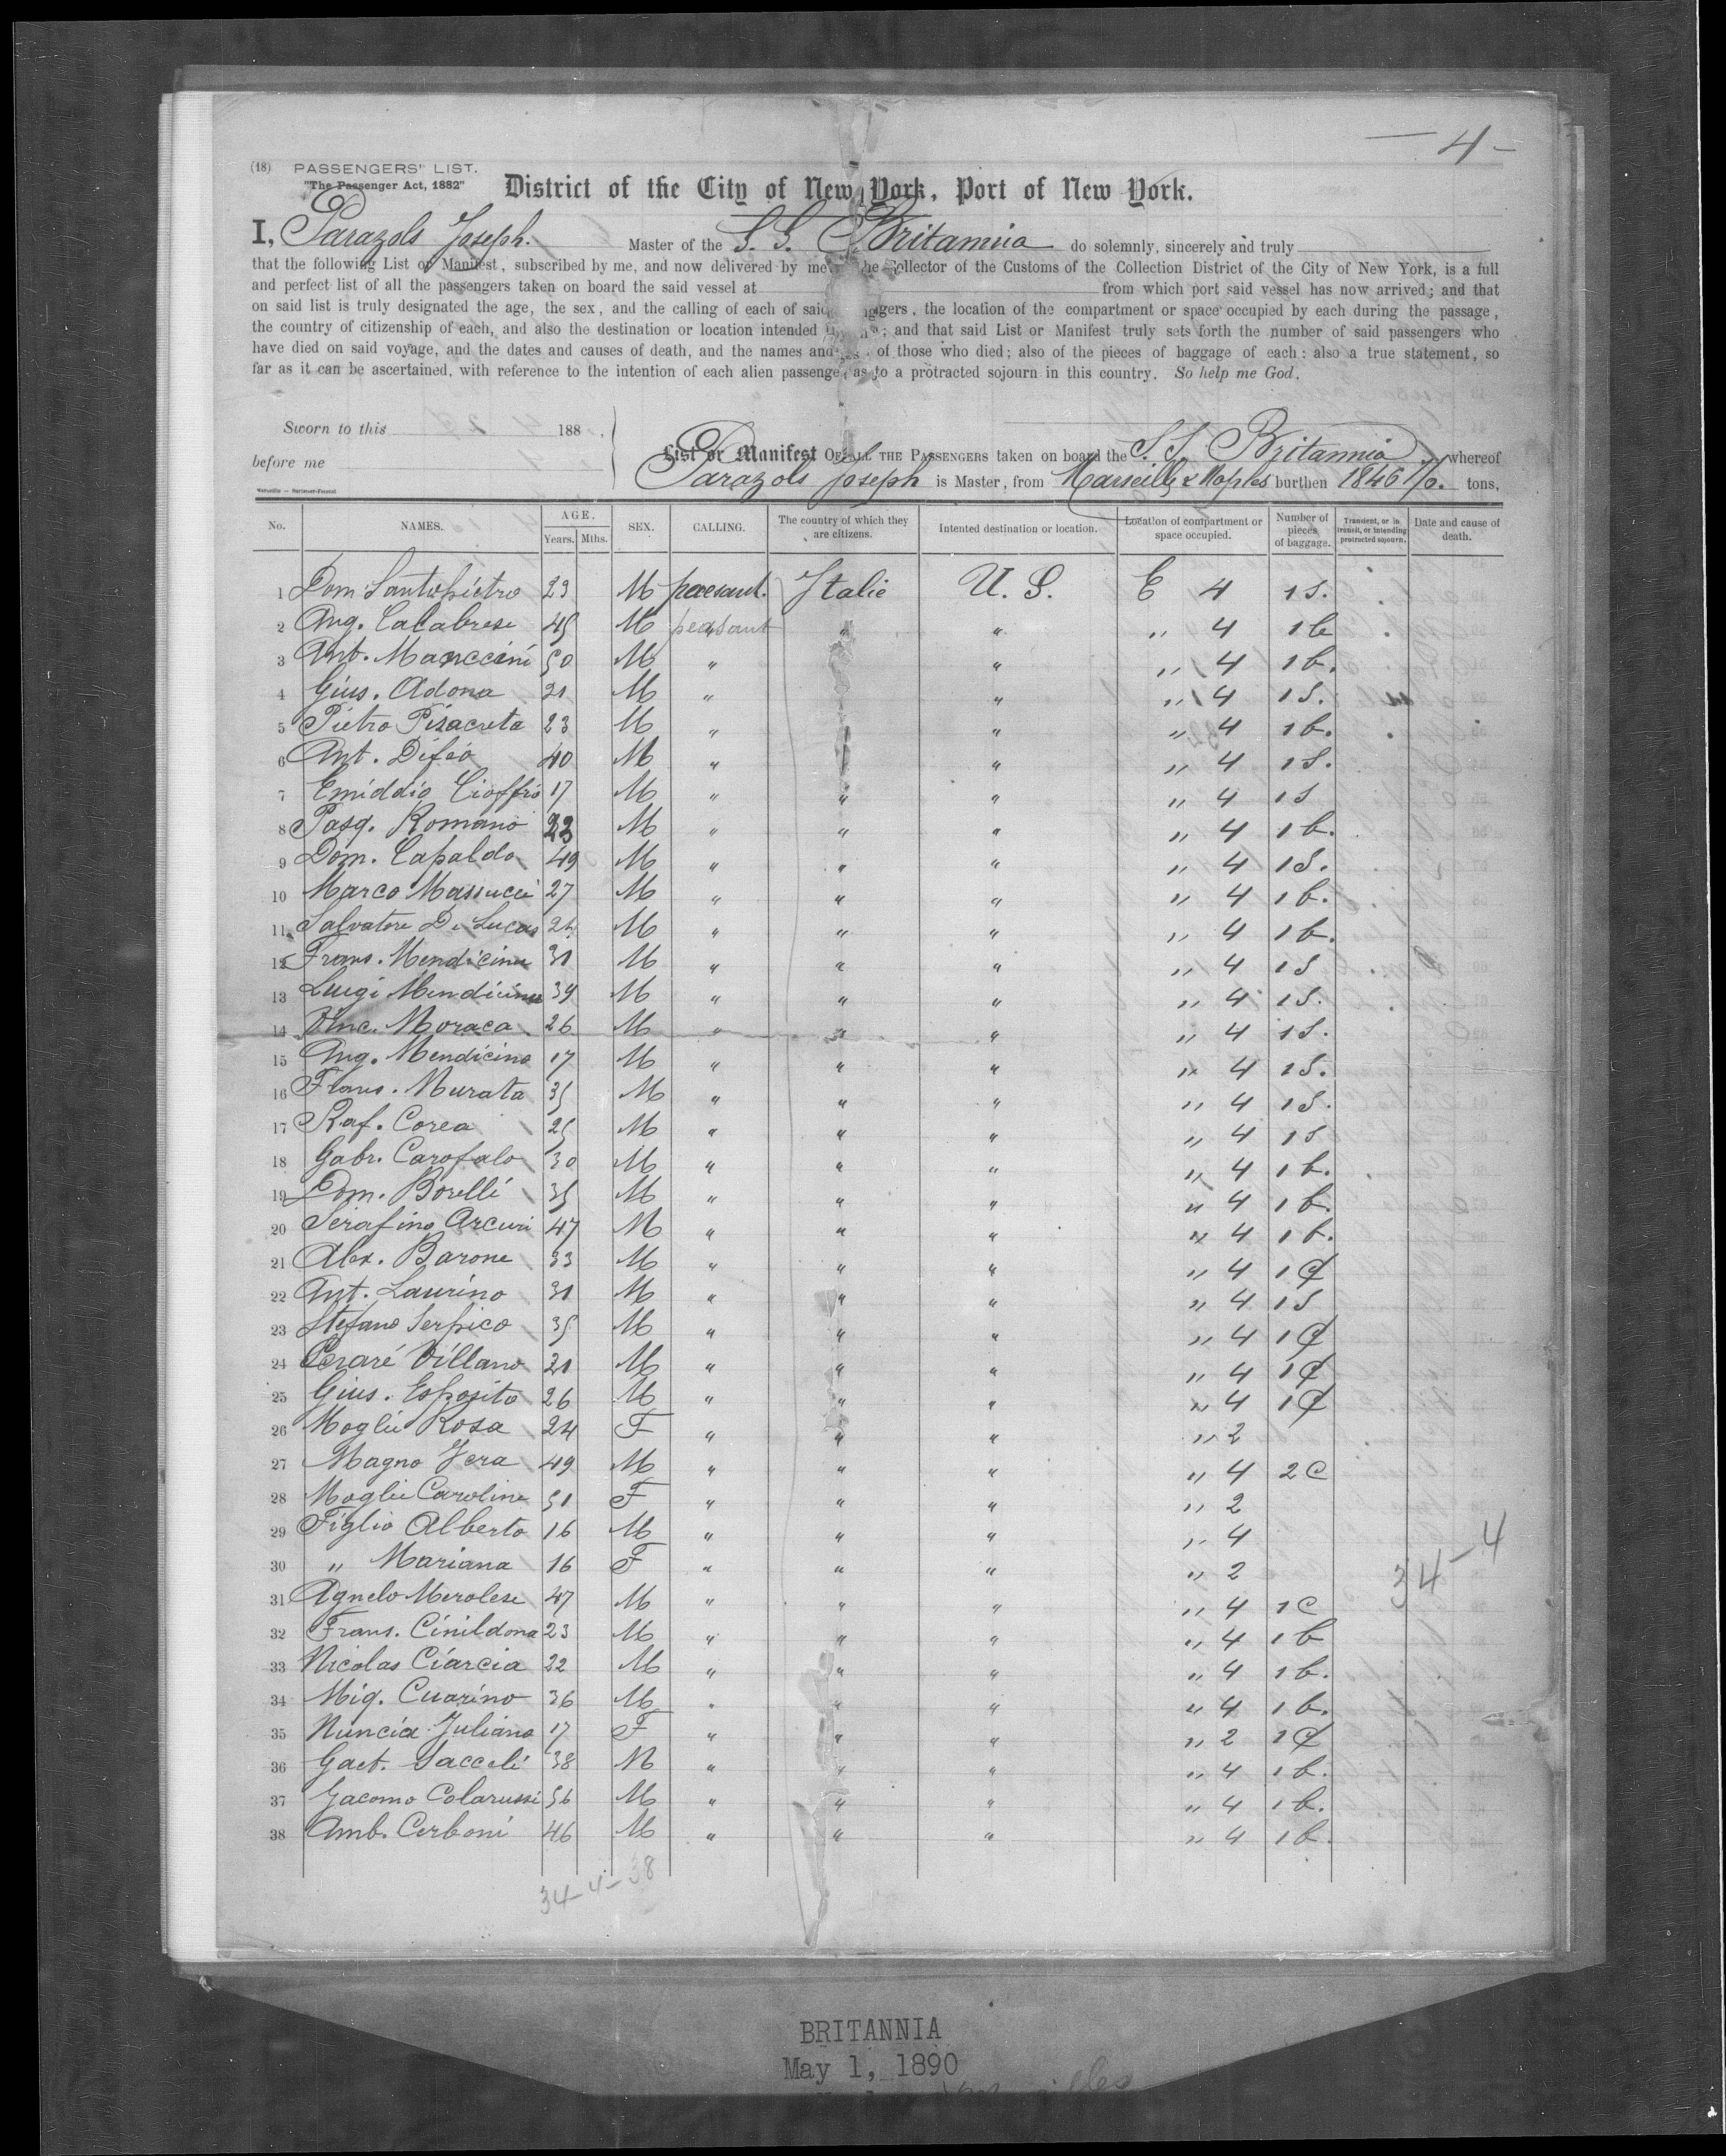 — 4 —
(18) PASSENGERS' LIST.
"The Passenger Act, 1882" District of the City of New York, Port of New York.
I, Parazols Joseph. Master of the S. S. Britannia do solemnly, sincerely and truly
that the following List or Manifest, subscribed by me, and now delivered by me the Collector of the Customs of the Collection District of the City of New York, is a full
and perfect list of all the passengers taken on board the said vessel at from which port said vessel has now arrived; and that
on said list is truly designated the age, the sex, and the calling of each of said passengers, the location of the compartment or space occupied by each during the passage,
the country of citizenship of each, and also the destination or location intended ; and that said List or Manifest truly sets forth the number of said passengers who
have died on said voyage, and the dates and causes of death, and the names and of those who died; also of the pieces of baggage of each: also a true statement, so
far as it can be ascertained, with reference to the intention of each alien passenger as to a protracted sojourn in this country. So help me God.
Sworn to this 188 .
before me
List or Manifest OF ALL THE PASSENGERS taken on board the S. S. Britannia whereof
Parazols Joseph is Master, from Marseille & Naples burthen 1846 tons,
No. NAMES. AGE. Years. Mths. SEX. CALLING. The country of which they are citizens. Intented destination or location. Location of compartment or space occupied. Number of pieces of baggage. Transient, or in transit, or intending protracted sojourn. Date and cause of death.
1 Dom Santopietro 23 M peasant. Italie U. S. E 4 1 S.
2 Ang. Calabrese 45 M peasant " " " 4 1 b
3 Ant. Manccini 50 M " " " " 4 1 b.
4 Gius. Adona 21 M " " " " 4 1 S.
5 Pietro Pisacreta 23 M " " " " 4 1 b.
6 Ant. Difeo 40 M " " " " 4 1 S.
7 Emiddio Cioffro 17 M " " " " 4 1 S
8 Pasq. Romano 23 M " " " " 4 1 b.
9 Dom. Capaldo 49 M " " " " 4 1 S.
10 Marco Massucci 27 M " " " " 4 1 b.
11 Salvatore Di Lucas 24 M " " " " 4 1 b.
12 Frans. Mendicino 31 M " " " " 4 1 S
13 Luigi Mendicino 39 M " " " " 4 1 S.
14 Vinc. Moraca 26 M " " " " 4 1 S.
15 Ang. Mendicino 17 M " " " " 4 1 S.
16 Frans. Murata 35 M " " " " 4 1 S.
17 Raf. Corea 25 M " " " " 4 1 S
18 Gabr. Carofalo 30 M " " " " 4 1 b.
19 Dom. Borelli 35 M " " " " 4 1 b.
20 Serafino Arcuri 47 M " " " " 4 1 b.
21 Alex. Barone 33 M " " " " 4 1 C
22 Ant. Laurino 31 M " " " " 4 1 S
23 Stefano Serpico 35 M " " " " 4 1 C
24 Cerare Villano 21 M " " " " 4 1 C
25 Gius. Esposito 26 M " " " " 4 1 C
26 Moglie Rosa 24 F " " " " 2
27 Magno Jera 49 M " " " " 4 2 C
28 Moglie Caroline 51 F " " " " 2
29 Figlio Alberto 16 M " " " " 4
30 " Mariana 16 F " " " " 2
34 – 4
31 Agnelo Merolese 47 M " " " " 4 1 C
32 Frans. Cinildona 23 M " " " " 4 1 b
33 Nicolas Ciarcia 22 M " " " " 4 1 b.
34 Mig. Cuarino 36 M " " " " 4 1 b.
35 Nuncia Juliano 17 F " " " " 2 1 C
36 Gaet. Sacceli 38 M " " " " 4 1 b.
37 Gacomo Colarussi 56 M " " " " 4 1 b.
38 Amb. Cerboni 46 M " " " " 4 1 b.
34 – 4 – 38
BRITANNIA
May 1, 1890